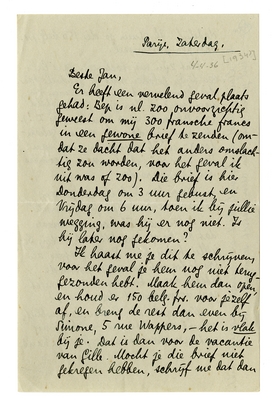 Parijs, Zaterdag.
4/4/36 [1936]
Beste Jan,
Er heeft een vervelend geval plaats
gehad: Bep is nl. zoo onvoorzichtig
geweest om mij 300 fransche francs
in een gewone brief te zenden (om-
dat ze dacht dat het anders omslach-
tig zou worden, voor het geval ik
uit was of zoo). Die brief is hier
Donderdag om 3 uur gepost, en
Vrijdag om 6 uur, toen ik bij jullie
wegging, was hij er nog niet. Is
hij later nog gekomen?
Ik haast me je dit te schrijven,
voor het geval je hem nog niet terug-
gezonden hebt. Maak hem dan open,
en houd er 150 belg. frs. voor jezelf
af, en breng de rest dan even bij
Simone, 5 rue Wappers, – het is vlak
bij je. Dat is dan voor de vacantie
van Gille. Mocht je die brief niet
gekregen hebben, schrijf me dat dan